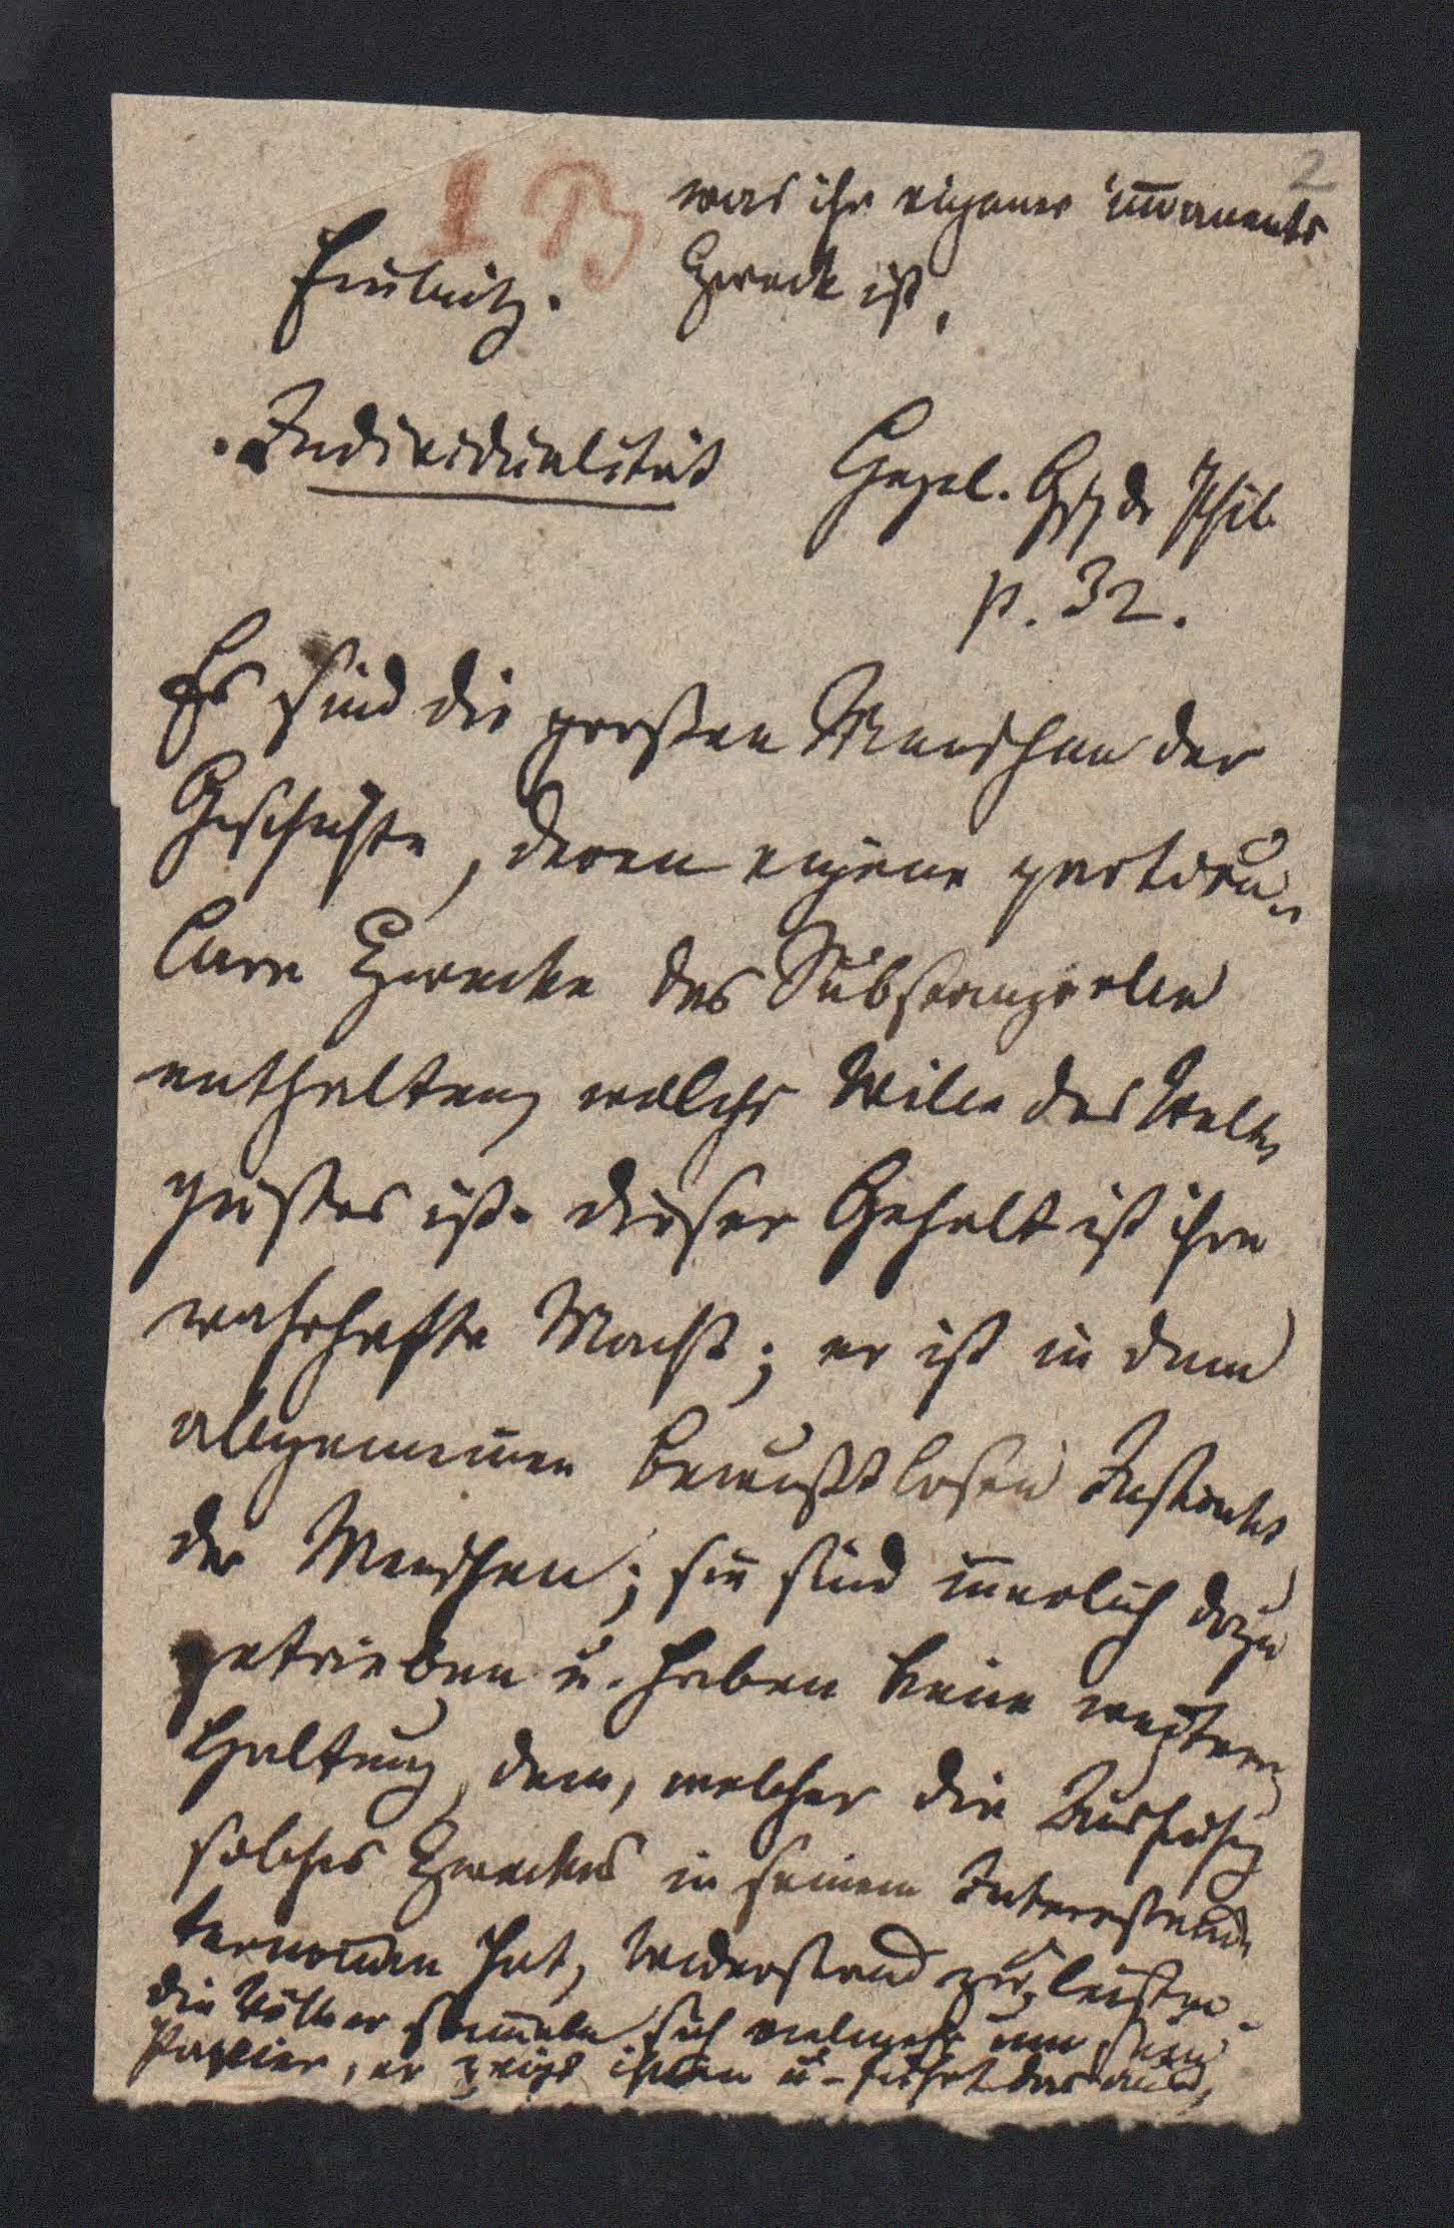 2
1 B
was ihr eigner im̄anenter
Zweck ist,
Einleitg.
Individualität Hegel. Gsch d Phil.
p. 32.
Es sind die großen Menschen der
Geschichte, deren eigene particu-
lare Zwecke das Substanzielle
enthalten, welches Wille des Welt-
geistes ist. Dieser Gehalt ist ihre
wahrhafte Macht; er ist in dem
allgemeinen bewußtlosen Instincte
der Menschen; sie sind iñerlich dazu
getrieben u. haben keine weitere
Haltung, dem, welcher die Ausführg
solches Zweckes in seinem Interesse un-
ternom̄en hat, Widerstand zu leisten.
Die Völker sam̄eln sich vielmehr um sein
Panier, er zeigt ihnen u. führt das aus,